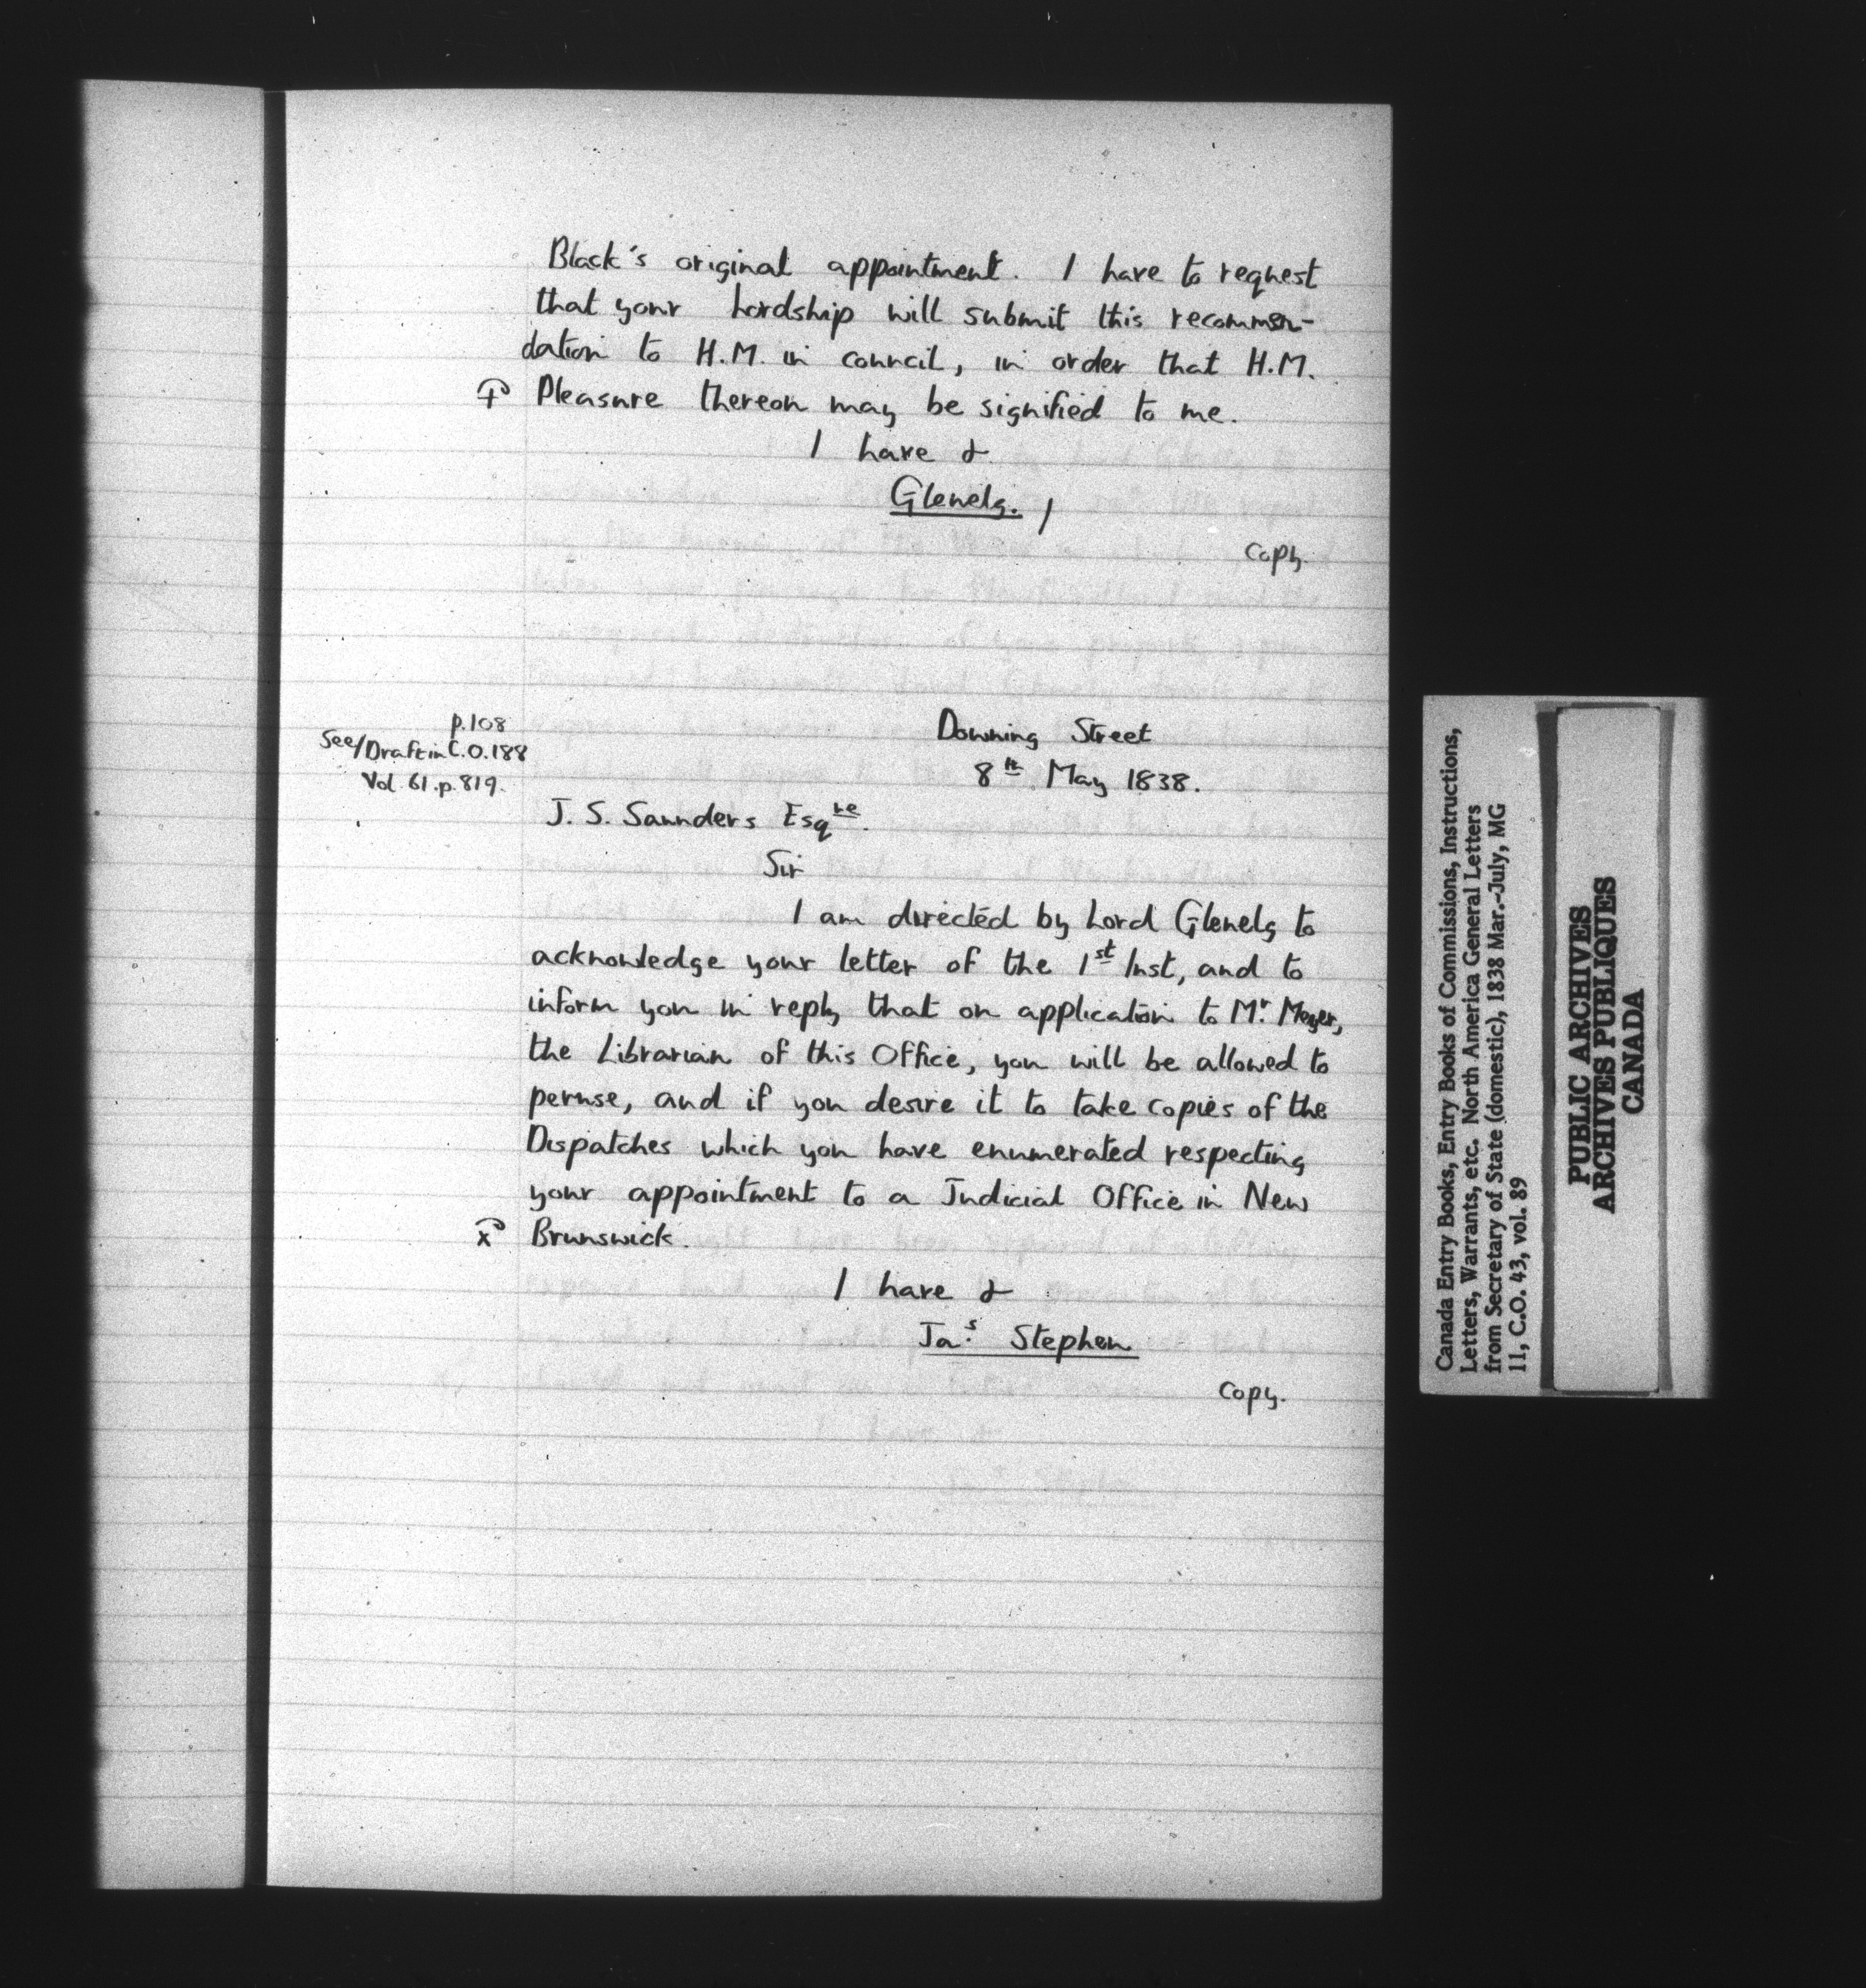 Black's original appointment. I have to request
that your Lordship will submit this recommen-
dation to H.M. in council, in order that H.M.
Pleasure thereon may be signified to me.
I have &
Glenelg.
Copy.
p.108
See/Draft in C.O.188
Vol. 61.p.819.
Downing Street
8th May 1838.
J. S. Saunders Esqre.
Sir
I am directed by Lord Glenelg to
acknowledge your letter of the 1st Inst, and to
inform you in reply that on application to Mr. Meyer,
the Librarian of this Office, you will be allowed to
peruse, and if you desire it to take copies of the
Dispatches which you have enumerated respecting
your appointment to a Judicial Office in New
x Brunswick.
I have &
Jas. Stephen
Copy.
Canada Entry Books, Entry Books of Commissions, Instructions,
Letters, Warrants, etc. North America General Letters
from Secretary of State (domestic), 1838 Mar.-July, MG
11, C.O. 43, vol. 89
PUBLIC ARCHIVES
ARCHIVES PUBLIQUES
CANADA